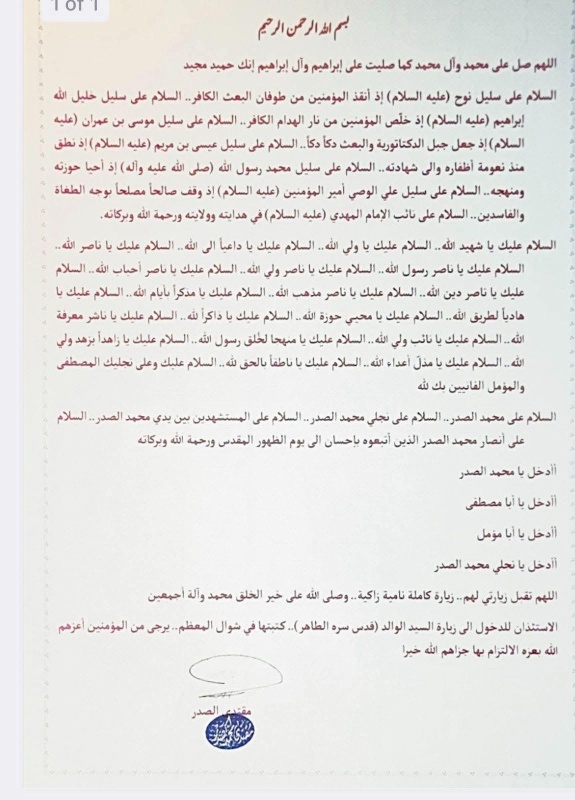 1 of 1
بسم الله الرحمن الرحيم
اللهم صل على محمد وآل محمد كما صليت على إبراهيم وآل إبراهيم إنك حميد مجيد
السلام على سليل نوح (عليه السلام) إذ أنقذ المؤمنين من طوفان البعث الكافر.. السلام على سليل خليل الله
إبراهيم (عليه السلام) إذ خلّص المؤمنين من نار الهدام الكافر.. السلام على سليل موسى بن عمران (عليه
السلام) إذ جعل جبل الدكتاتورية والبعث دكاً دكاً.. السلام على سليل عيسى بن مريم (عليه السلام) إذ نطق
منذ نعومة أظفاره والى شهادته.. السلام على سليل محمد رسول الله (صلى الله عليه وآله) إذ أحيا حوزته
ومنهجه.. السلام على سليل علي الوصي أمير المؤمنين (عليه السلام) إذ وقف صالحاً مصلحاً بوجه الطغاة
والفاسدين.. السلام على نائب الإمام المهدي (عليه السلام) في هدايته وولايته ورحمة الله وبركاته.
السلام عليك يا شهيد الله.. السلام عليك يا ولي الله.. السلام عليك يا داعياً الى الله.. السلام عليك يا ناصر الله..
السلام عليك يا ناصر رسول الله.. السلام عليك يا ناصر ولي الله.. السلام عليك يا ناصر أحباب الله.. السلام
عليك يا ناصر دين الله.. السلام عليك يا ناصر مذهب الله.. السلام عليك يا مذكراً بأيام الله.. السلام عليك يا
هادياً لطريق الله.. السلام عليك يا محيي حوزة الله.. السلام عليك يا ذاكراً لله.. السلام عليك يا ناشر معرفة
الله.. السلام عليك يا نائب ولي الله.. السلام عليك يا منهجا لخُلق رسول الله.. السلام عليك يا زاهداً بزهد ولي
الله.. السلام عليك يا مذلّ أعداء الله.. السلام عليك يا ناطقاً بالحق لله.. السلام عليك وعلى نجليك المصطفى
والمؤمل الفانيين بك لله
السلام على محمد الصدر.. السلام على نجلي محمد الصدر.. السلام على المستشهدين بين يدي محمد الصدر.. السلام
على أنصار محمد الصدر الذين أتبعوه بإحسان الى يوم الظهور المقدس ورحمة الله وبركاته
أأدخل يا محمد الصدر
أأدخل يا أبا مصطفى
أأدخل يا أبا مؤمل
أأدخل يا نجلي محمد الصدر
اللهم تقبل زيارتي لهم.. زيارة كاملة نامية زاكية.. وصلى الله على خير الخلق محمد وآلة أجمعين
الاستئذان للدخول الى زيارة السيد الوالد (قدس سره الطاهر).. كتبتها في شوال المعظم.. يرجى من المؤمنين أعزهم
الله بعزه الالتزام بها جزاهم الله خيرا
مقتدى الصدر